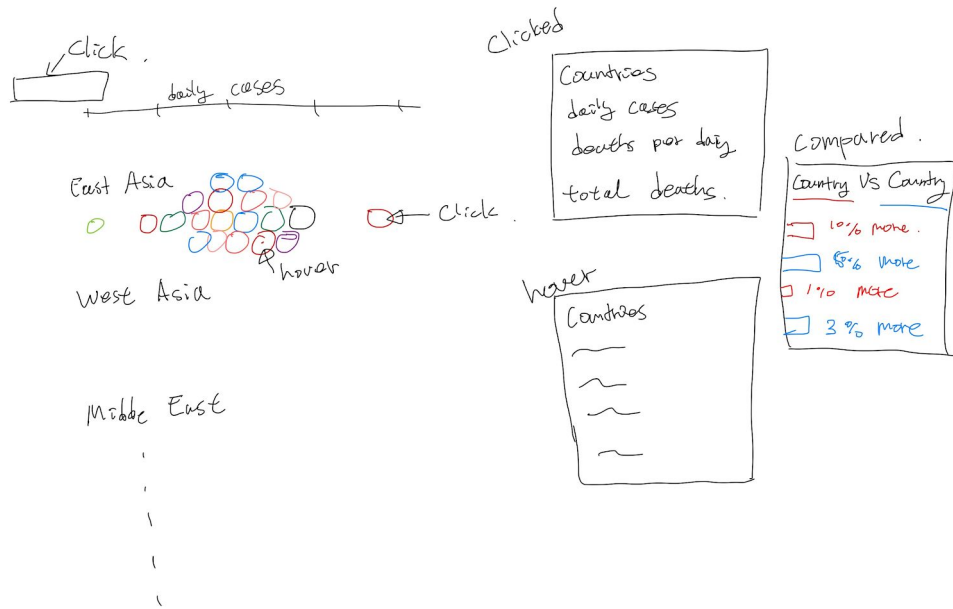 Click.
daily cases
East Asia
Click.
hover
West Asia
Middle East
Clicked
Countries
daily cases
deaths per daily
total deaths.
hover
Countries
Compared.
Country Vs Country
10% more.
% more
1% more
3% more